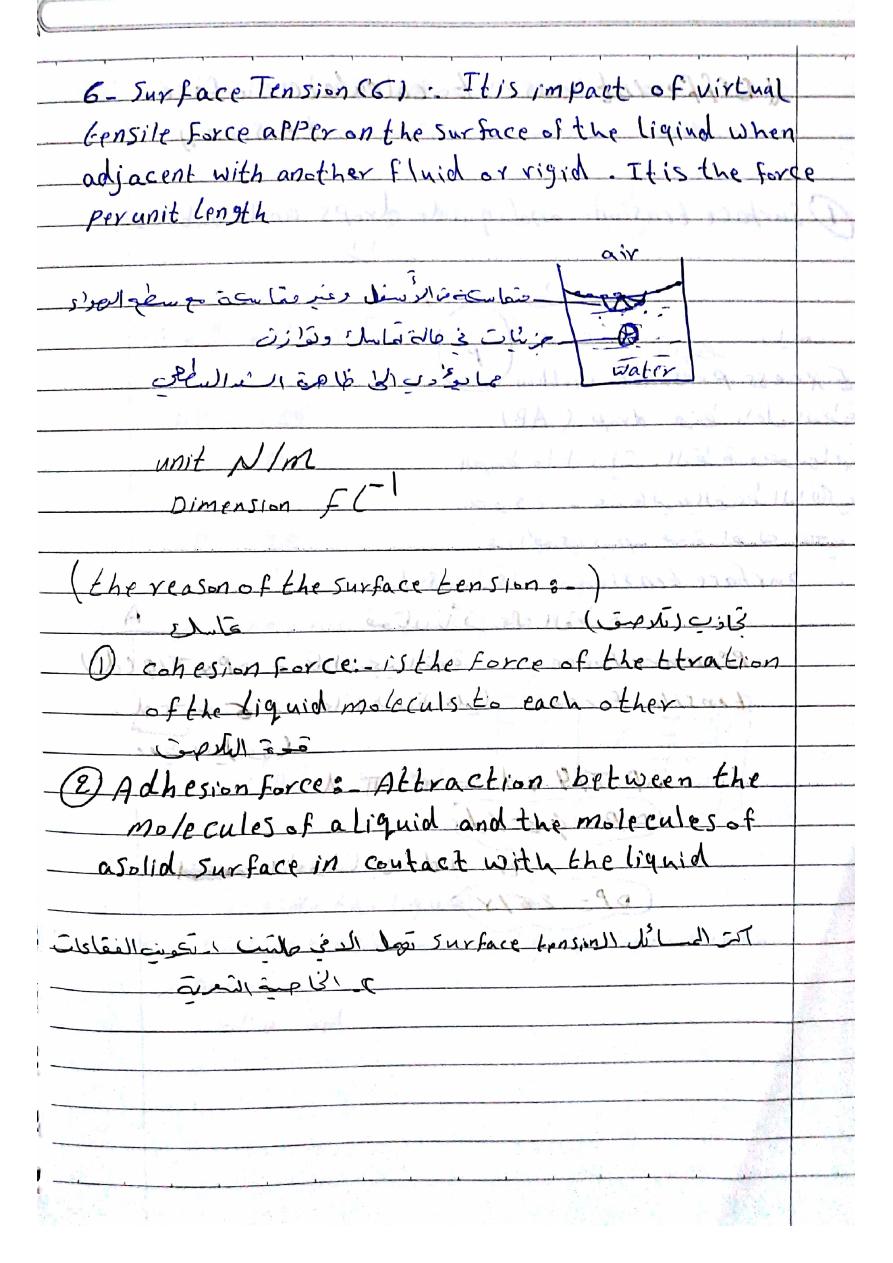 6- Surface Tension (σ) :- It is impact of virtual
tensile force apper on the surface of the liqiud when
adjacent with another fluid or rigid. It is the force
per unit length
air
متماسكة من الأسفل وغير متماسكة مع سطح الهواء
جزيئات في حالة تماسك وتوازن
water
مما يؤدي الى ظاهرة الشد السطحي
unit N/m
Dimension FL⁻¹
(the reason of the surface tension :-)
تماسك تجاذب (تلاصق)
① cohesion force:- is the force of the ttration
of the liquid moleculs to each other
قوة التلاصق
② Adhesion force:- Attraction between the
molecules of a liquid and the molecules of
a solid surface in contact with the liquid
اكثر المسائل surface tension تهمل الا في حالتين ١- تكوين الفقاعات
٢- الخاصية الشعرية